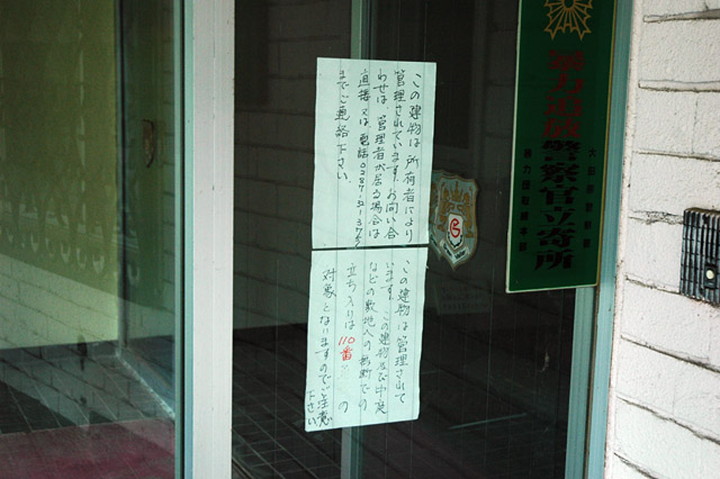 この建物は所有者により
管理されています。お問い合
わせは、管理者が居る場合は
直接又は、電話0287-32-3
までご連絡下さい。
この建物は管理されて
います。この建物及び中庭
などの敷地への無断での
立ち入りは110番の
対象となりますのでご注意
下さい
暴力追放
警察官立寄所